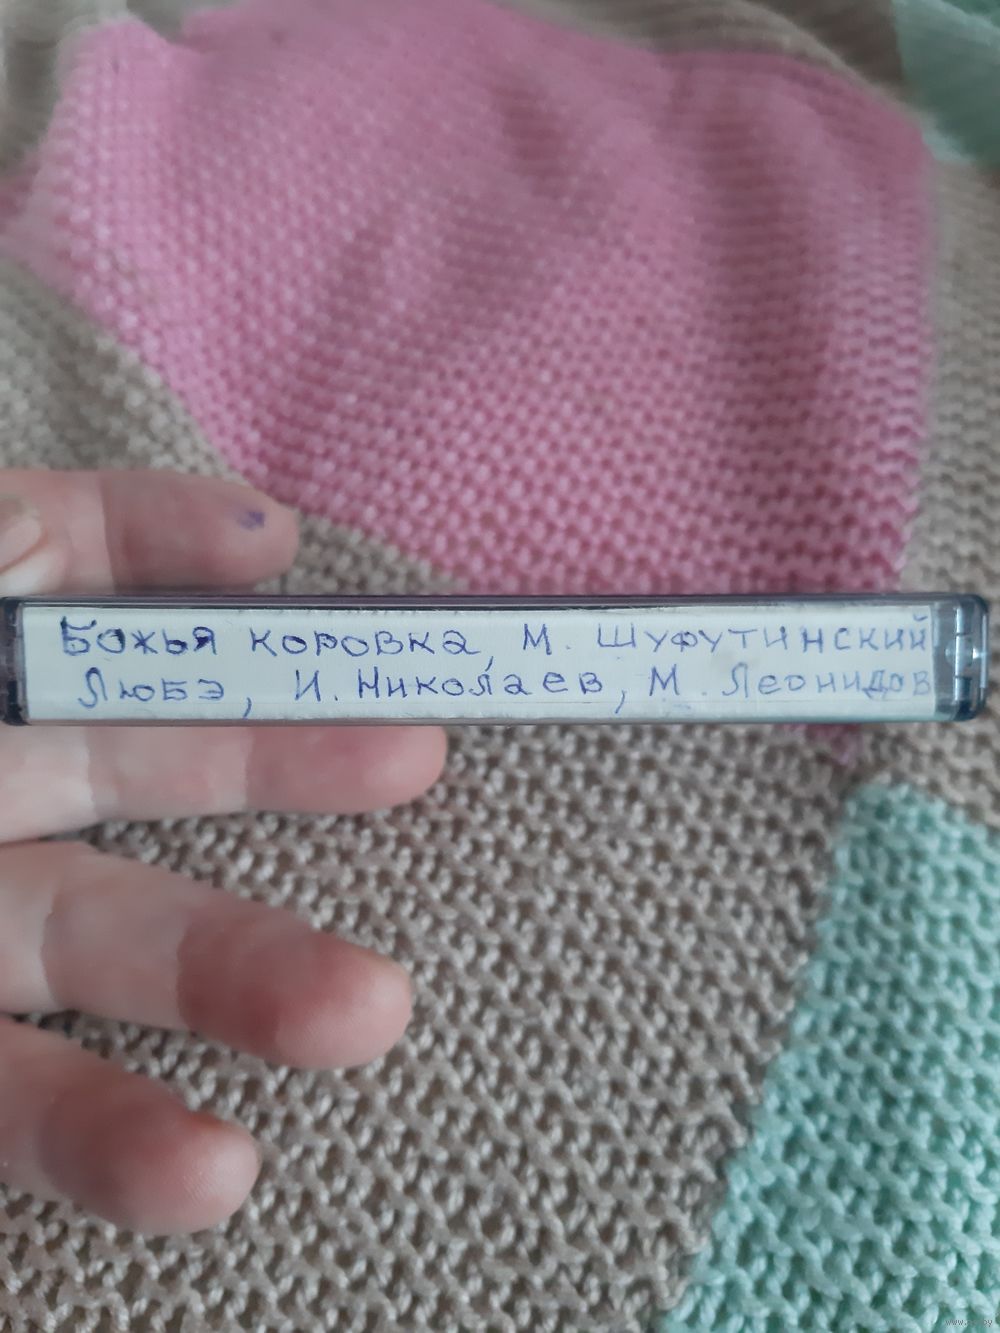 Божья коровка, М. Шуфутинский
Любэ, И. Николаев, М. Леонидов